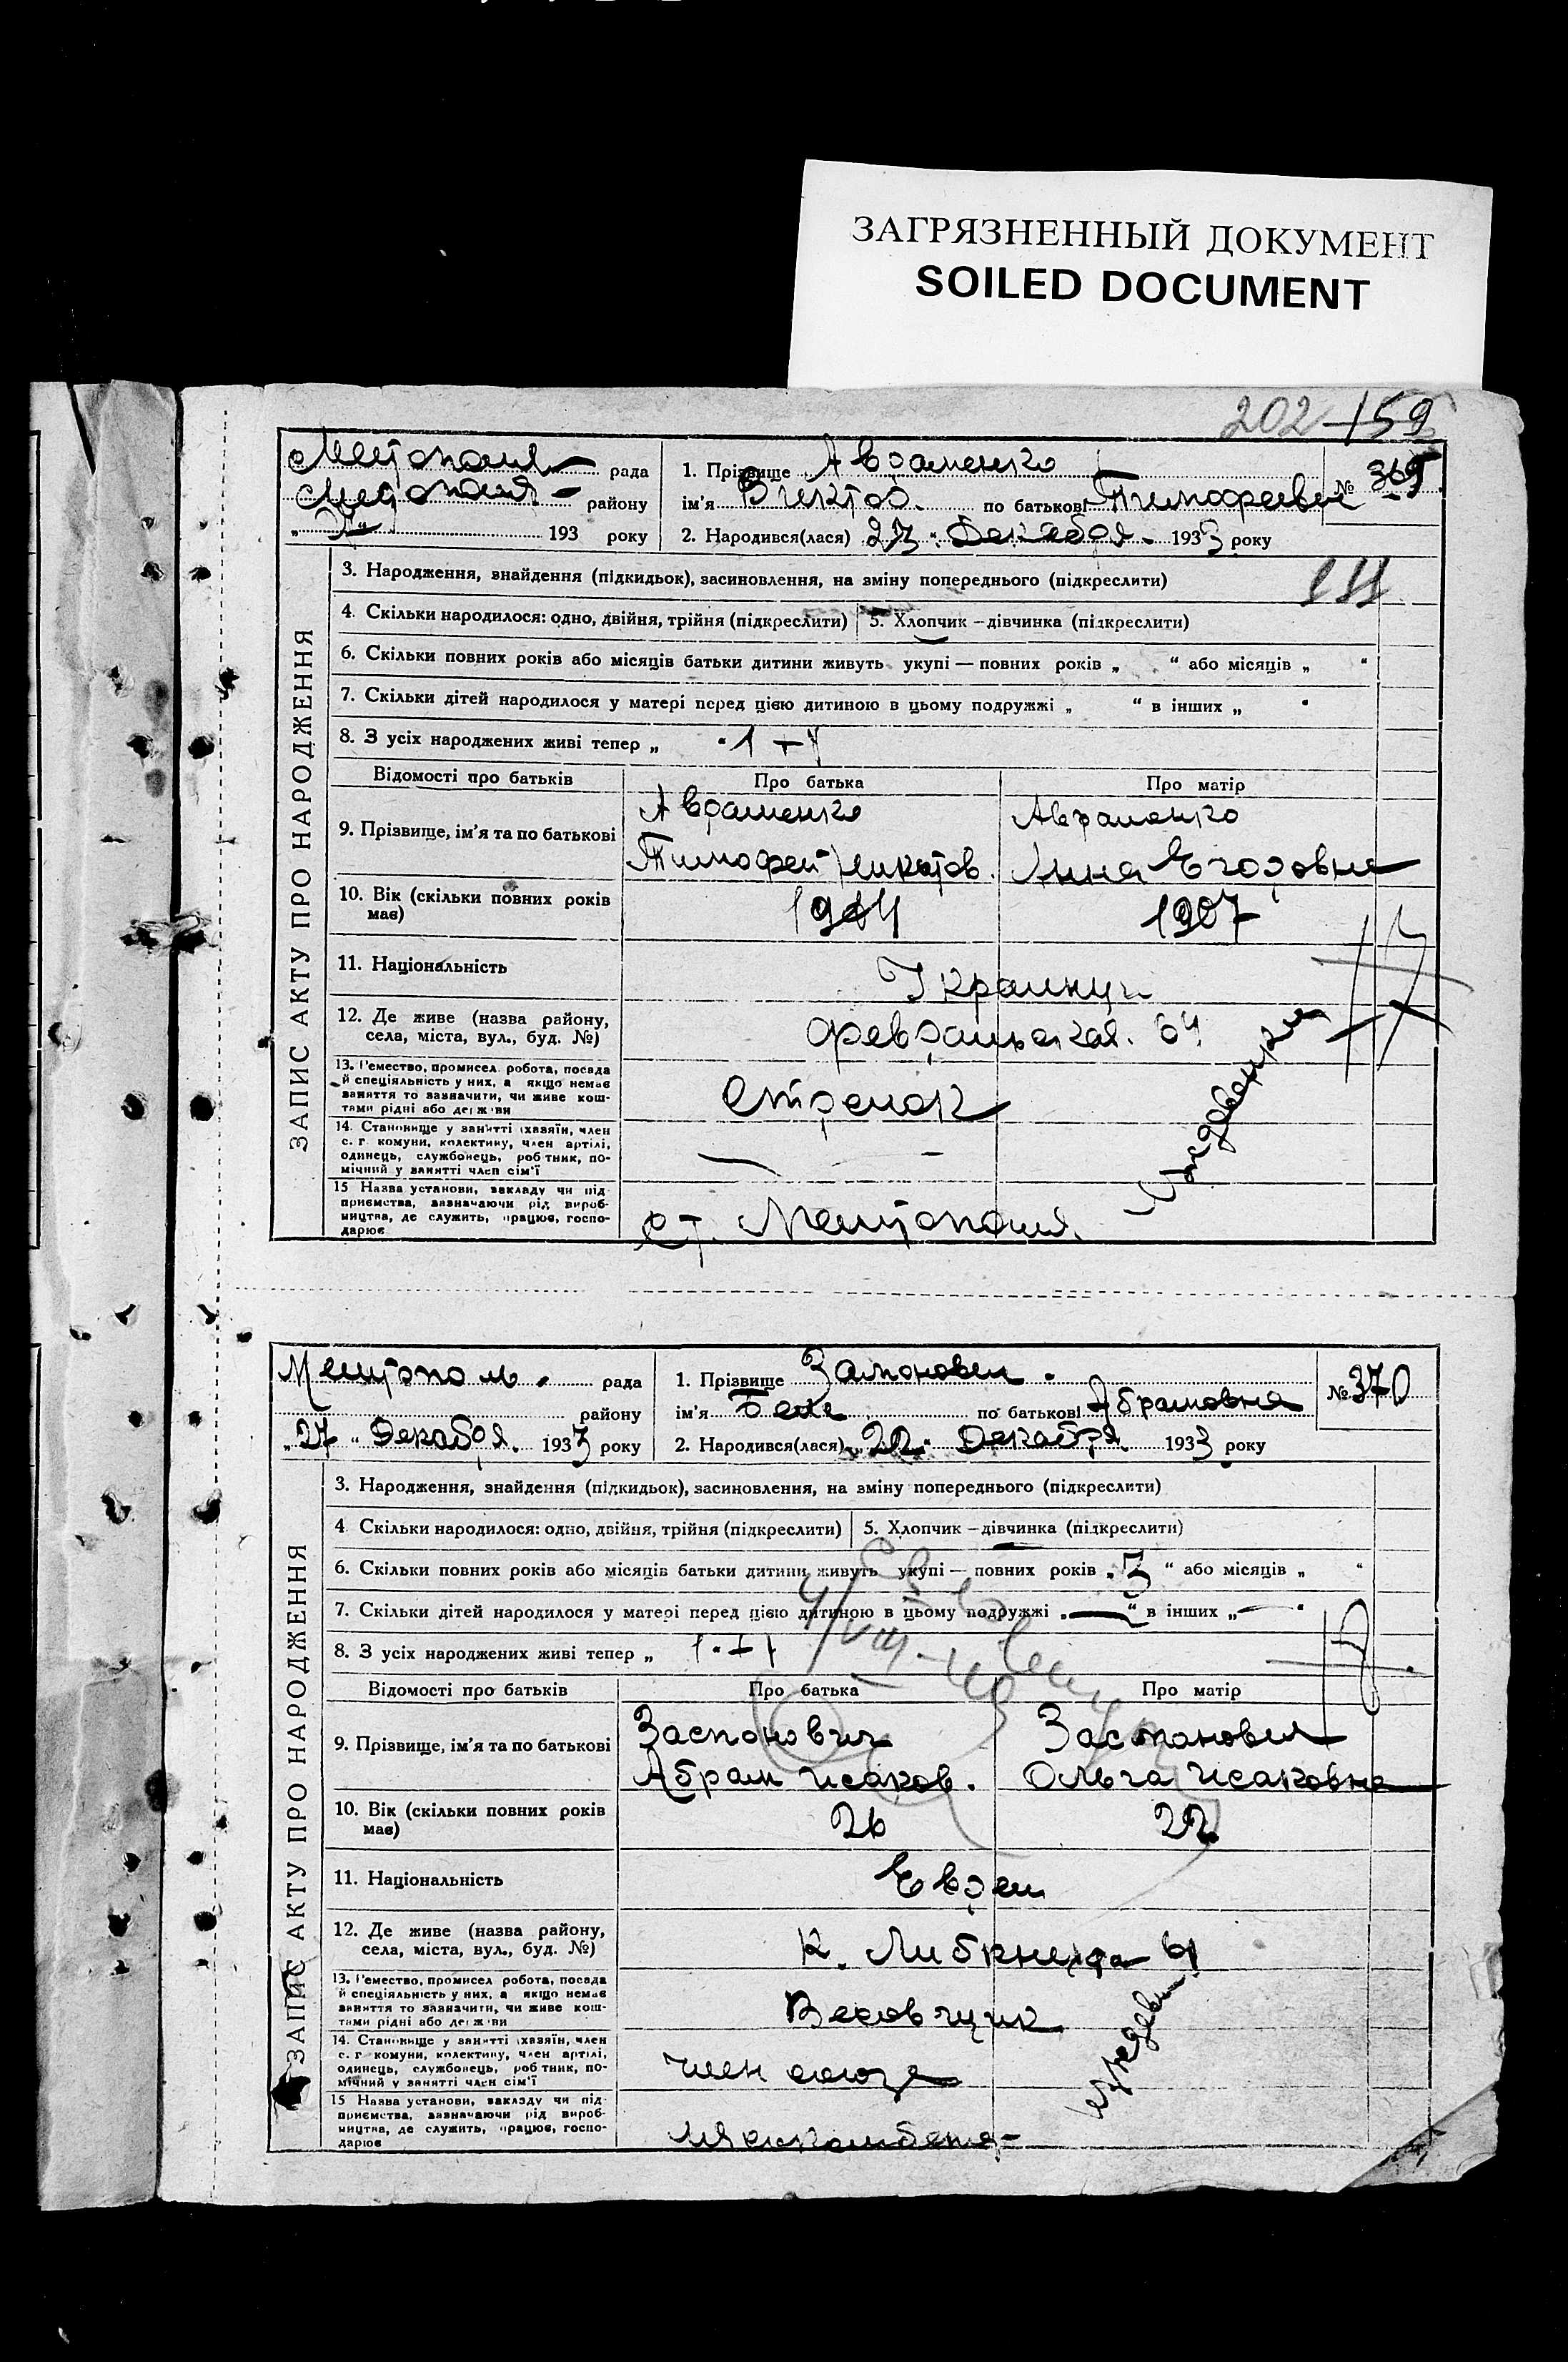 ЗАГРЯЗНЕННЫЙ ДОКУМЕНТ
SOILED DOCUMENT
202 159
рада
району
193 року
1. Прізвище Авраменко
ім'я Виктор. по батькові Тимофеевич
№ 369
2. Народився(лася) 23 " Декабря 1933 року
ЗАПИС АКТУ ПРО НАРОДЖЕННЯ
3. Народження, знайдення (підкидьок), засиновлення, на зміну попереднього (підкреслити)
4. Скільки народилося: одно, двійня, трійня (підкреслити)
5. Хлопчик – дівчинка (підкреслити)
6. Скільки повних років або місяців батьки дитини живуть укупі — повних років „ “ або місяців „ “
7. Скільки дітей народилося у матері перед цією дитиною в цьому подружжі „ “ в інших „ “
8. З усіх народжених живі тепер „ 1 +
Відомості про батьків
Про батька
Про матір
9. Прізвище, ім'я та по батькові
Авраменко
Тимофей
Авраменко
Анна Егоровна
10. Вік (скільки повних років має)
1907
11. Національність
Украинцы
12. Де живе (назва району, села, міста, вул., буд. №)
Февральская. 64
13. Ремество, промисел робота, посада й спеціяльність у них, а якщо немає заняття то зазначити, чи живе коштами рідні або держави
Стрелок
14. Становище у занятті (хазяїн, член с. г. комуни, колективу, член артілі, одинець, службовець, робітник, помічний у занятті член сім'ї
15 Назва установи, закладу чи підприємства, зазначаючи рід виробництва, де служить, працює, господарює
ст. Мелитополь.
Мелитополь. рада
району
„27 “ Декабря. 1933 року
1. Прізвище
ім'я по батькові Абрамовна
№ 370
2. Народився(лася) „22 “ Декабря 1933 року
ЗАПИС АКТУ ПРО НАРОДЖЕННЯ
3. Народження, знайдення (підкидьок), засиновлення, на зміну попереднього (підкреслити)
4. Скільки народилося: одно, двійня, трійня (підкреслити)
5. Хлопчик – дівчинка (підкреслити)
6. Скільки повних років або місяців батьки дитини живуть укупі — повних років „ 3 “ або місяців „ “
7. Скільки дітей народилося у матері перед цією дитиною в цьому подружжі „ — “ в інших „ — “
8. З усіх народжених живі тепер „ 1 + 1
Відомості про батьків
Про батька
Про матір
9. Прізвище, ім'я та по батькові
Абрам Исаков.
Ольга Исаковна
10. Вік (скільки повних років має)
26
22
11. Національність
Евреи
12. Де живе (назва району, села, міста, вул., буд. №)
К. Либкнехта
13. Ремество, промисел робота, посада й спеціяльність у них, а якщо немає заняття то зазначити, чи живе коштами рідні або держави
Весовщик
14. Становище у занятті (хазяїн, член с. г. комуни, колективу, член артілі, одинець, службовець, робітник, помічний у занятті член сім'ї
член союза
15 Назва установи, закладу чи підприємства, зазначаючи рід виробництва, де служить, працює, господарює